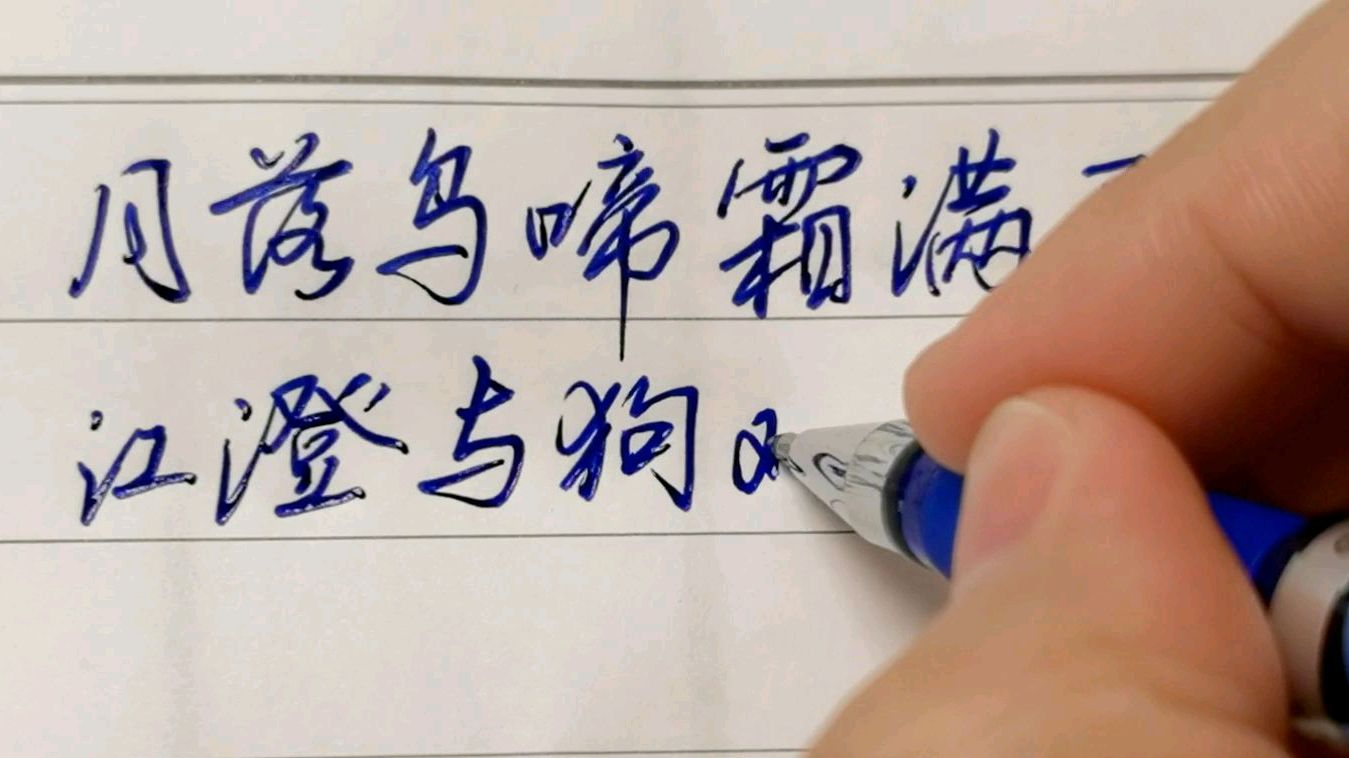 月落乌啼霜满
江澄与狗